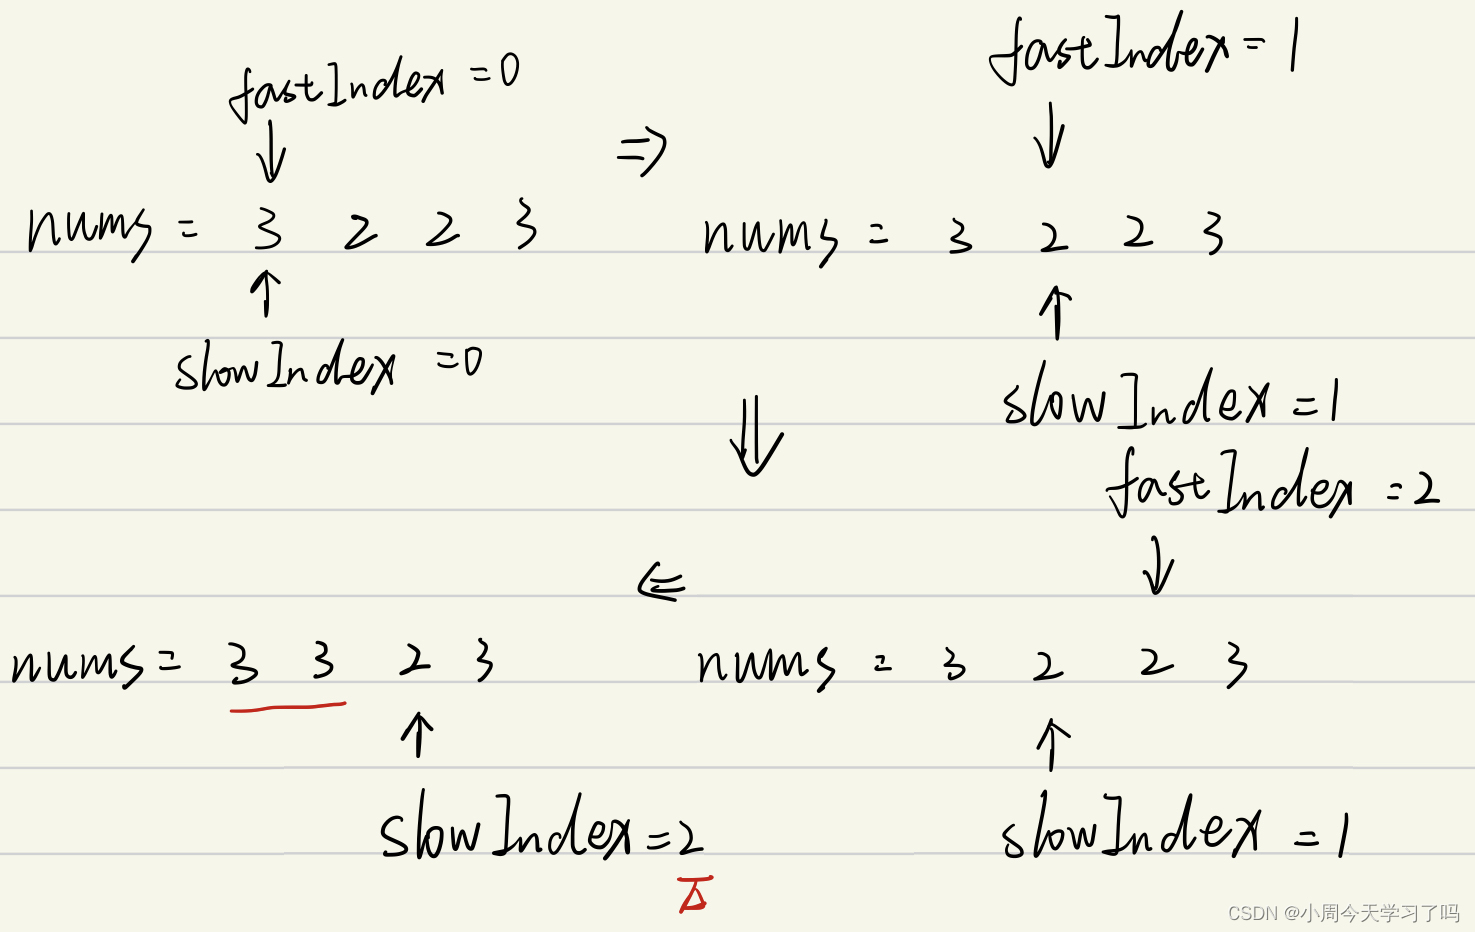 fastIndex = 0
nums = 3 2 2 3
slowIndex = 0
⇒
fastIndex = 1
nums = 3 2 2 3
slowIndex = 1
⇓
fastIndex = 2
nums = 3 2 2 3
slowIndex = 1
⇐
nums = 3 3 2 3
slowIndex = 2
CSDN @小周今天学习了吗